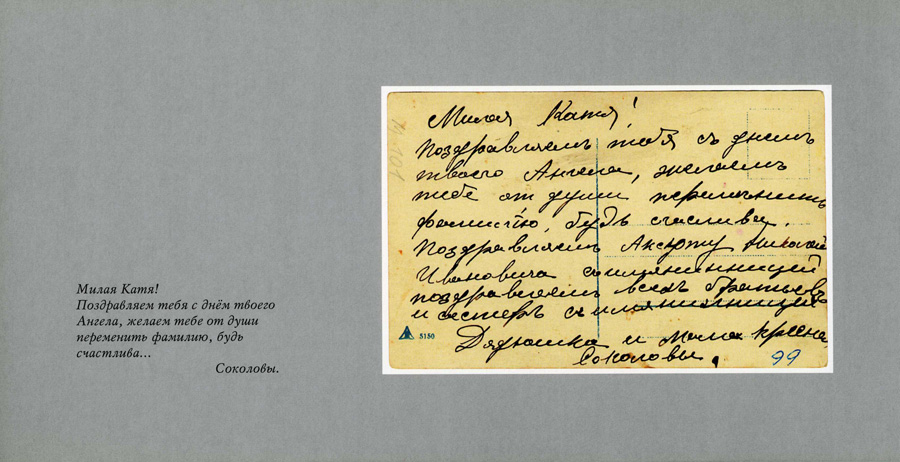 Милая Катя!
Поздравляем тебя с днём твоего
Ангела, желаем тебе от души
переменить фамилию, будь
счастлива...
Соколовы.
Милая Катя!
Поздравляемъ тебя съ днемъ
твоего Ангела, желаемъ
тебе от души переменить
фамилію, будь счастлива.
Поздравляем Аксюту Николай
Ивановича с имянинницей
поздравляем всехъ братьевъ
и сестеръ с имянинницей
Дядюшка и Мама крёсна
Соколовы.
5150
99